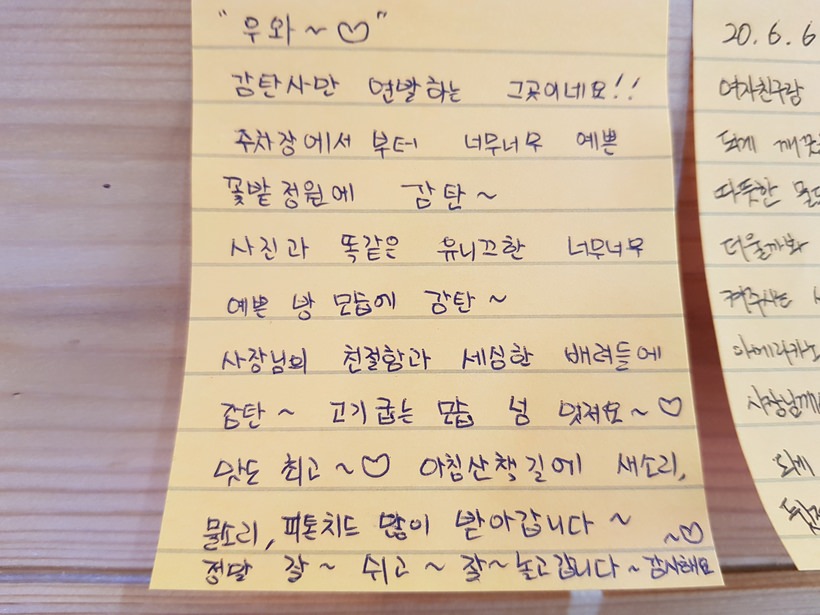 "우와~♡"
감탄사만 연발하는 그곳이네요!!
주차장에서 부터 너무너무 예쁜
꽃밭 정원에 감탄~
사진과 똑같은 유니끄한 너무너무
예쁜 방 모습에 감탄~
사장님의 친절함과 세심한 배려들에
감탄~ 고기굽는 모습 넘 멋져요~♡
맛도 최고~♡ 아침산책길에 새소리,
물소리, 피톤치드 많이 받아갑니다~
정말 잘~ 쉬고~ 잘~놀고갑니다~감사해요~♡
20.6.6
여자친구랑
되게
따뜻한
더울까봐
켜주시는
아메리카노
사장님께
되게